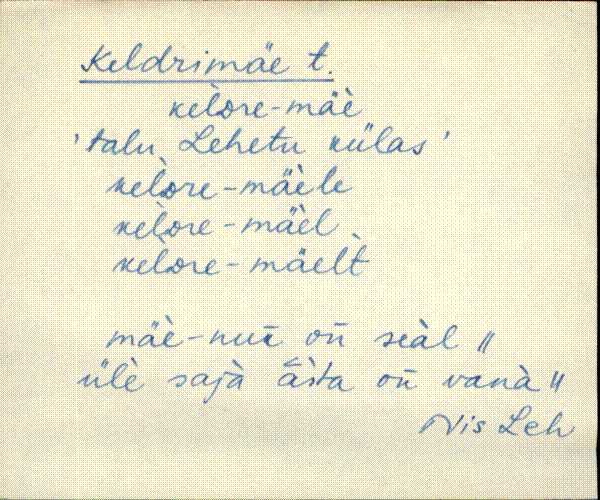 Keldrimäe t.
kèlᴅre-mäè
'talu Lehetu külas'
kèlᴅre-mäèle
kèlᴅre-mäèl
kèlᴅre-mäelt̀
mäè-nuı̄ on̄ seàl //
ülè sajà ästa on̄ vanà //
Nis Leh